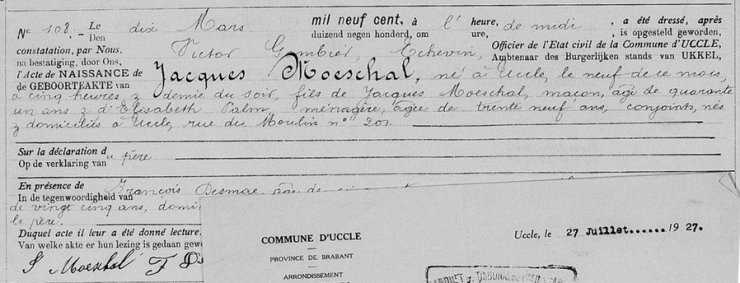 N° 108. Le dix Mars mil neuf cent. à l' heure, de midi, a été dressé, après
Den duizend negen honderd, om ure, is opgesteld geworden,
constatation, par Nous, Victor Gambier, Echevin, Officier de l'Etat civil de la Commune d'UCCLE,
na bestatiging, door Ons, Ambtenaar des Burgerlijken stands van UKKEL,
l'Acte de NAISSANCE de Jacques Moeschal, né à Uccle, le neuf de ce mois,
de GEBOORTEAKTE van
à cinq heures & demie du soir, fils de Jacques Moeschal, maçon, âgé de quarante
un ans & d'Elisabeth Palm, ménagère, âgée de trente neuf ans, conjoints, nés
& domiciliés à Uccle, rue du Moulin n° 201
Sur la déclaration du père
Op de verklaring van
En présence de François Desmae
In de tegenwoordigheid van
de vingt cinq ans, domi
le père.
Duquel acte il leur a été donné lecture.
Van welke akte er hun lezing is gedaan gewo
J Moeschal F D
COMMUNE D'UCCLE
PROVINCE DE BRABANT
ARRONDISSEMENT
Uccle, le 27 Juillet......1927.